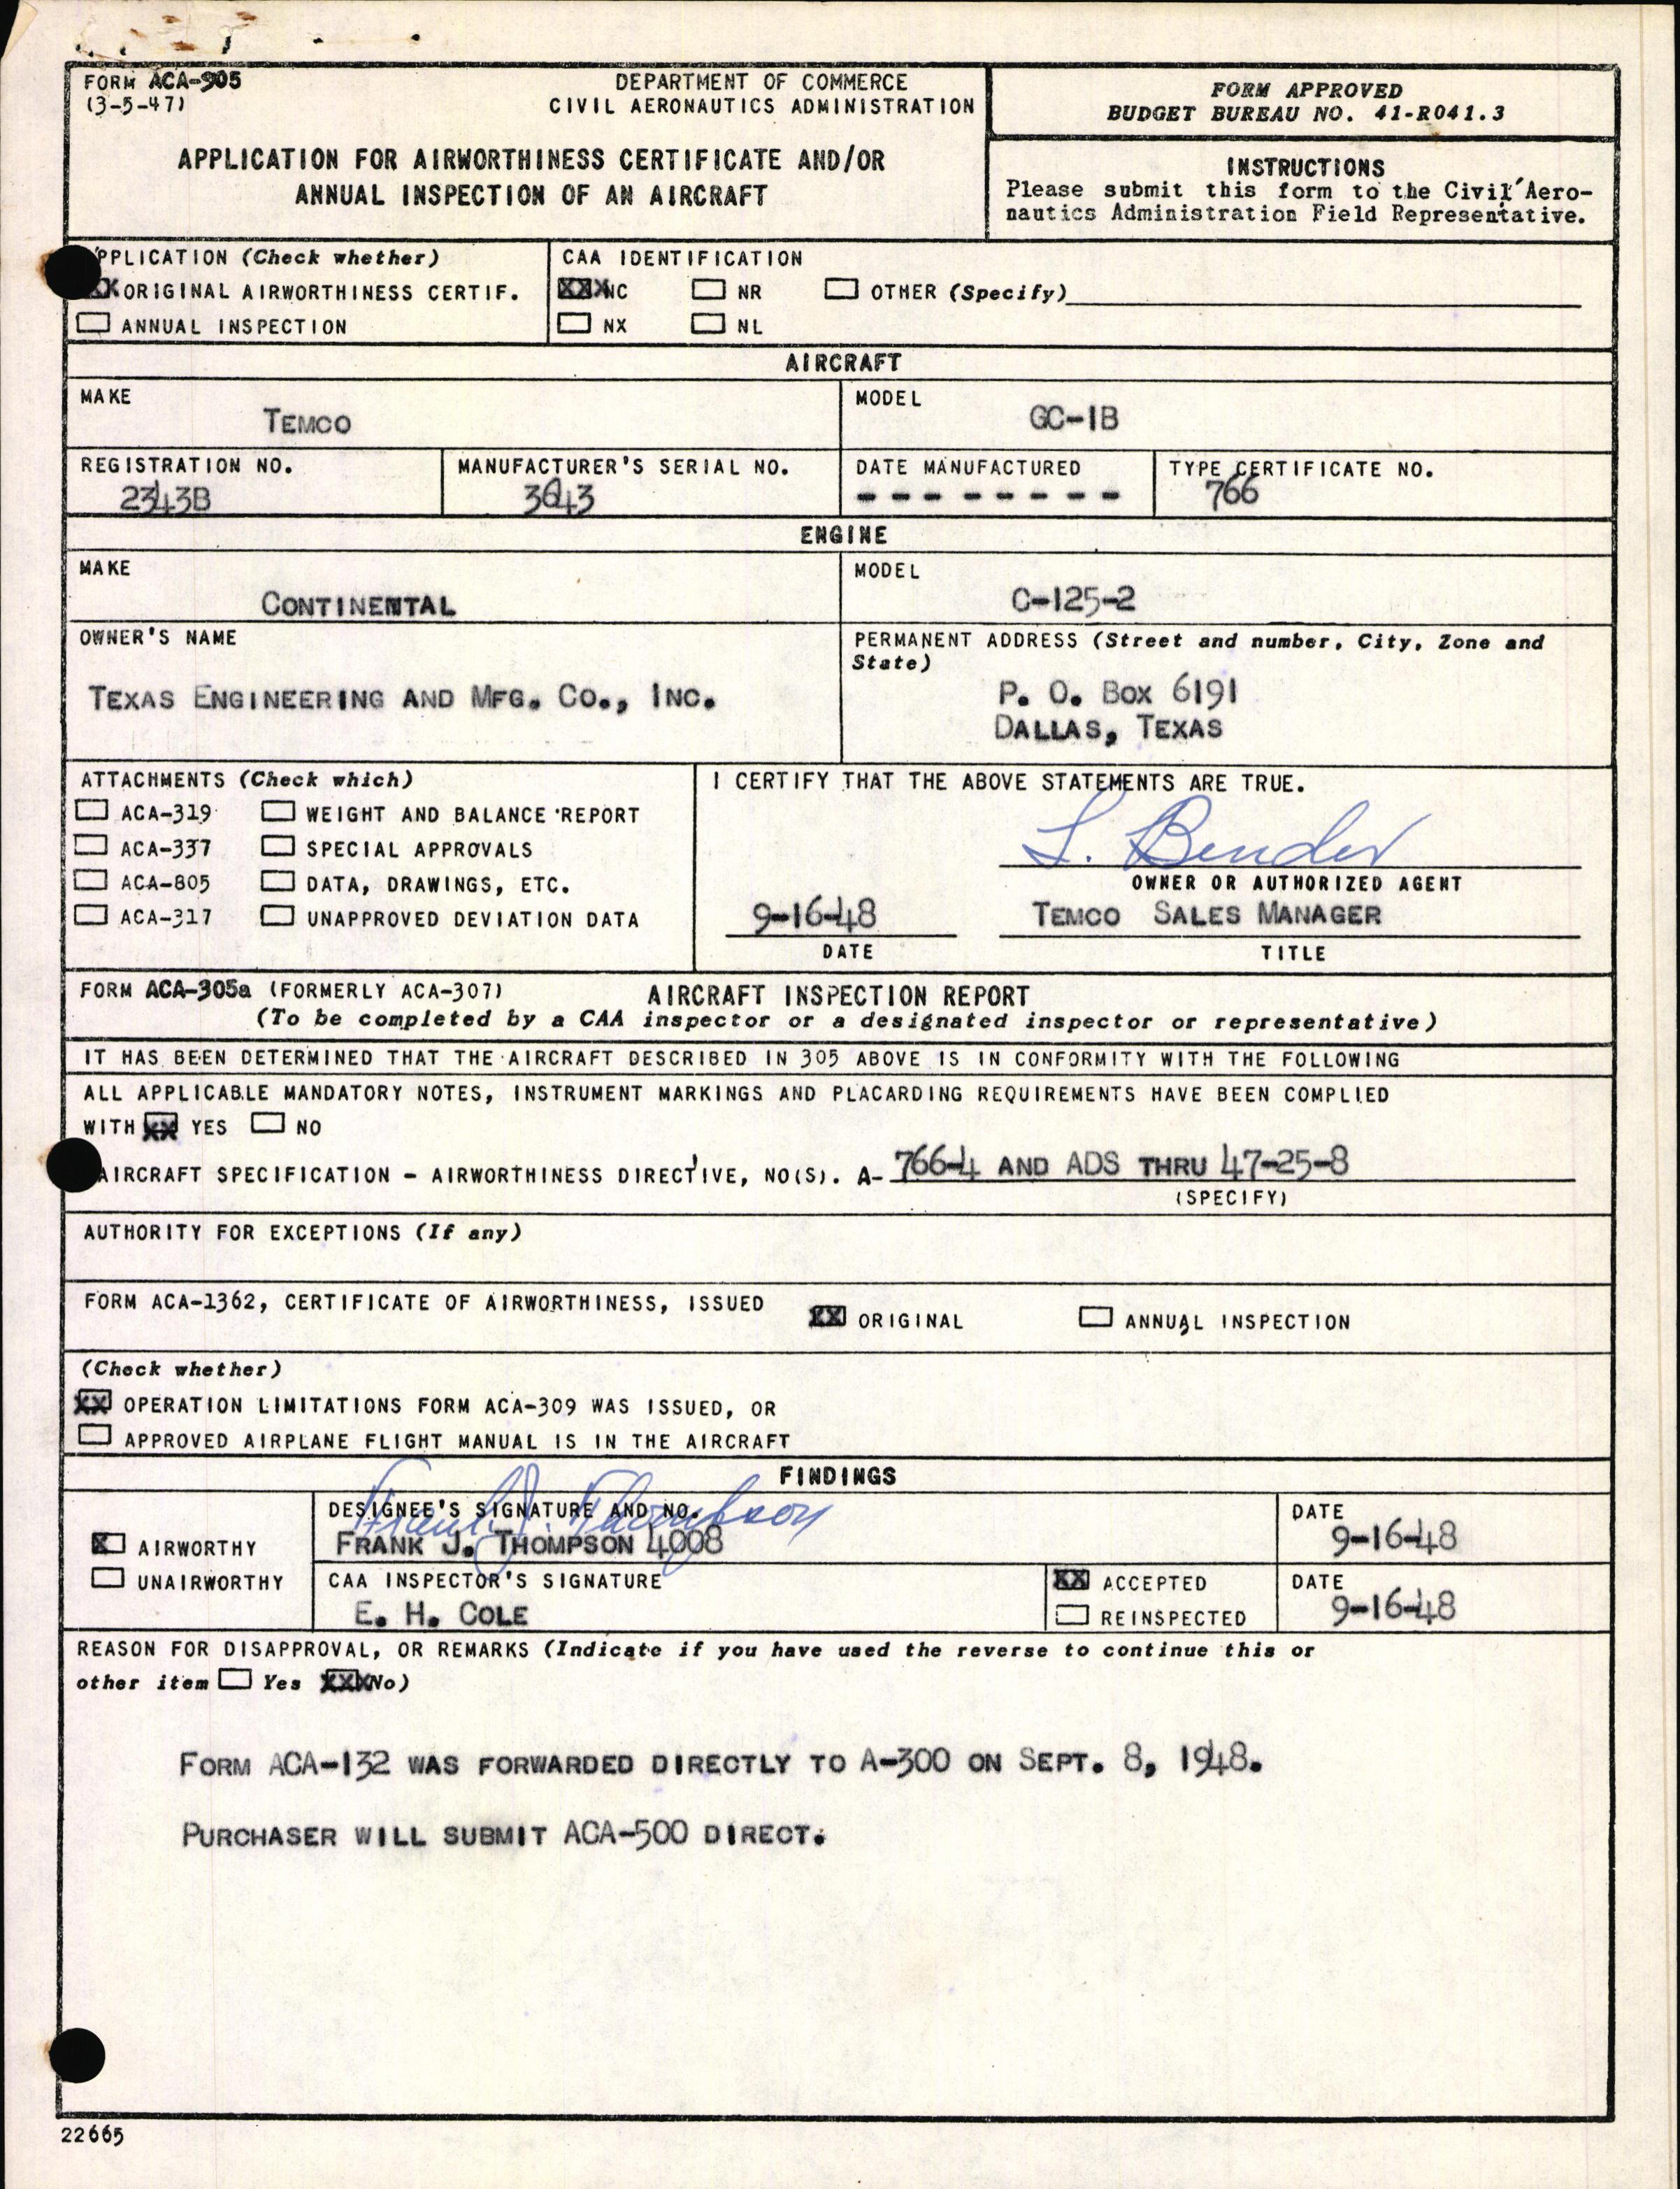 FORM ACA-305
(3-5-47)
DEPARTMENT OF COMMERCE
CIVIL AERONAUTICS ADMINISTRATION
APPLICATION FOR AIRWORTHINESS CERTIFICATE AND/OR
ANNUAL INSPECTION OF AN AIRCRAFT
FORM APPROVED
BUDGET BUREAU NO. 41-R041.3
INSTRUCTIONS
Please submit this form to the Civil Aero-
nautics Administration Field Representative.
PPLICATION (Check whether)
XX ORIGINAL AIRWORTHINESS CERTIF.
ANNUAL INSPECTION
CAA IDENTIFICATION
XXX NC NR OTHER (Specify)
NX NL
AIRCRAFT
MAKE
TEMCO
MODEL
GC-1B
REGISTRATION NO.
2343B
MANUFACTURER'S SERIAL NO.
3643
DATE MANUFACTURED
- - - - - - - -
TYPE CERTIFICATE NO.
766
ENGINE
MAKE
CONTINENTAL
MODEL
C-125-2
OWNER'S NAME
TEXAS ENGINEERING AND MFG. CO., INC.
PERMANENT ADDRESS (Street and number, City, Zone and
State)
P. O. BOX 6191
DALLAS, TEXAS
ATTACHMENTS (Check which)
ACA-319 WEIGHT AND BALANCE REPORT
ACA-337 SPECIAL APPROVALS
ACA-805 DATA, DRAWINGS, ETC.
ACA-317 UNAPPROVED DEVIATION DATA
I CERTIFY THAT THE ABOVE STATEMENTS ARE TRUE.
L. Bender
OWNER OR AUTHORIZED AGENT
9-16-48
DATE
TEMCO SALES MANAGER
TITLE
FORM ACA-305a (FORMERLY ACA-307) AIRCRAFT INSPECTION REPORT
(To be completed by a CAA inspector or a designated inspector or representative)
IT HAS BEEN DETERMINED THAT THE AIRCRAFT DESCRIBED IN 305 ABOVE IS IN CONFORMITY WITH THE FOLLOWING
ALL APPLICABLE MANDATORY NOTES, INSTRUMENT MARKINGS AND PLACARDING REQUIREMENTS HAVE BEEN COMPLIED
WITH XX YES NO
AIRCRAFT SPECIFICATION - AIRWORTHINESS DIRECTIVE, NO(S). A- 766-4 AND ADS THRU 47-25-8
(SPECIFY)
AUTHORITY FOR EXCEPTIONS (If any)
FORM ACA-1362, CERTIFICATE OF AIRWORTHINESS, ISSUED XX ORIGINAL ANNUAL INSPECTION
(Check whether)
XX OPERATION LIMITATIONS FORM ACA-309 WAS ISSUED, OR
APPROVED AIRPLANE FLIGHT MANUAL IS IN THE AIRCRAFT
FINDINGS
X AIRWORTHY
UNAIRWORTHY
DESIGNEE'S SIGNATURE AND NO.
Frank J. Thompson
FRANK J. THOMPSON 4008
DATE
9-16-48
CAA INSPECTOR'S SIGNATURE
E. H. COLE
XX ACCEPTED
REINSPECTED
DATE
9-16-48
REASON FOR DISAPPROVAL, OR REMARKS (Indicate if you have used the reverse to continue this or
other item Yes XXX No)
FORM ACA-132 WAS FORWARDED DIRECTLY TO A-300 ON SEPT. 8, 1948.
PURCHASER WILL SUBMIT ACA-500 DIRECT.
22665